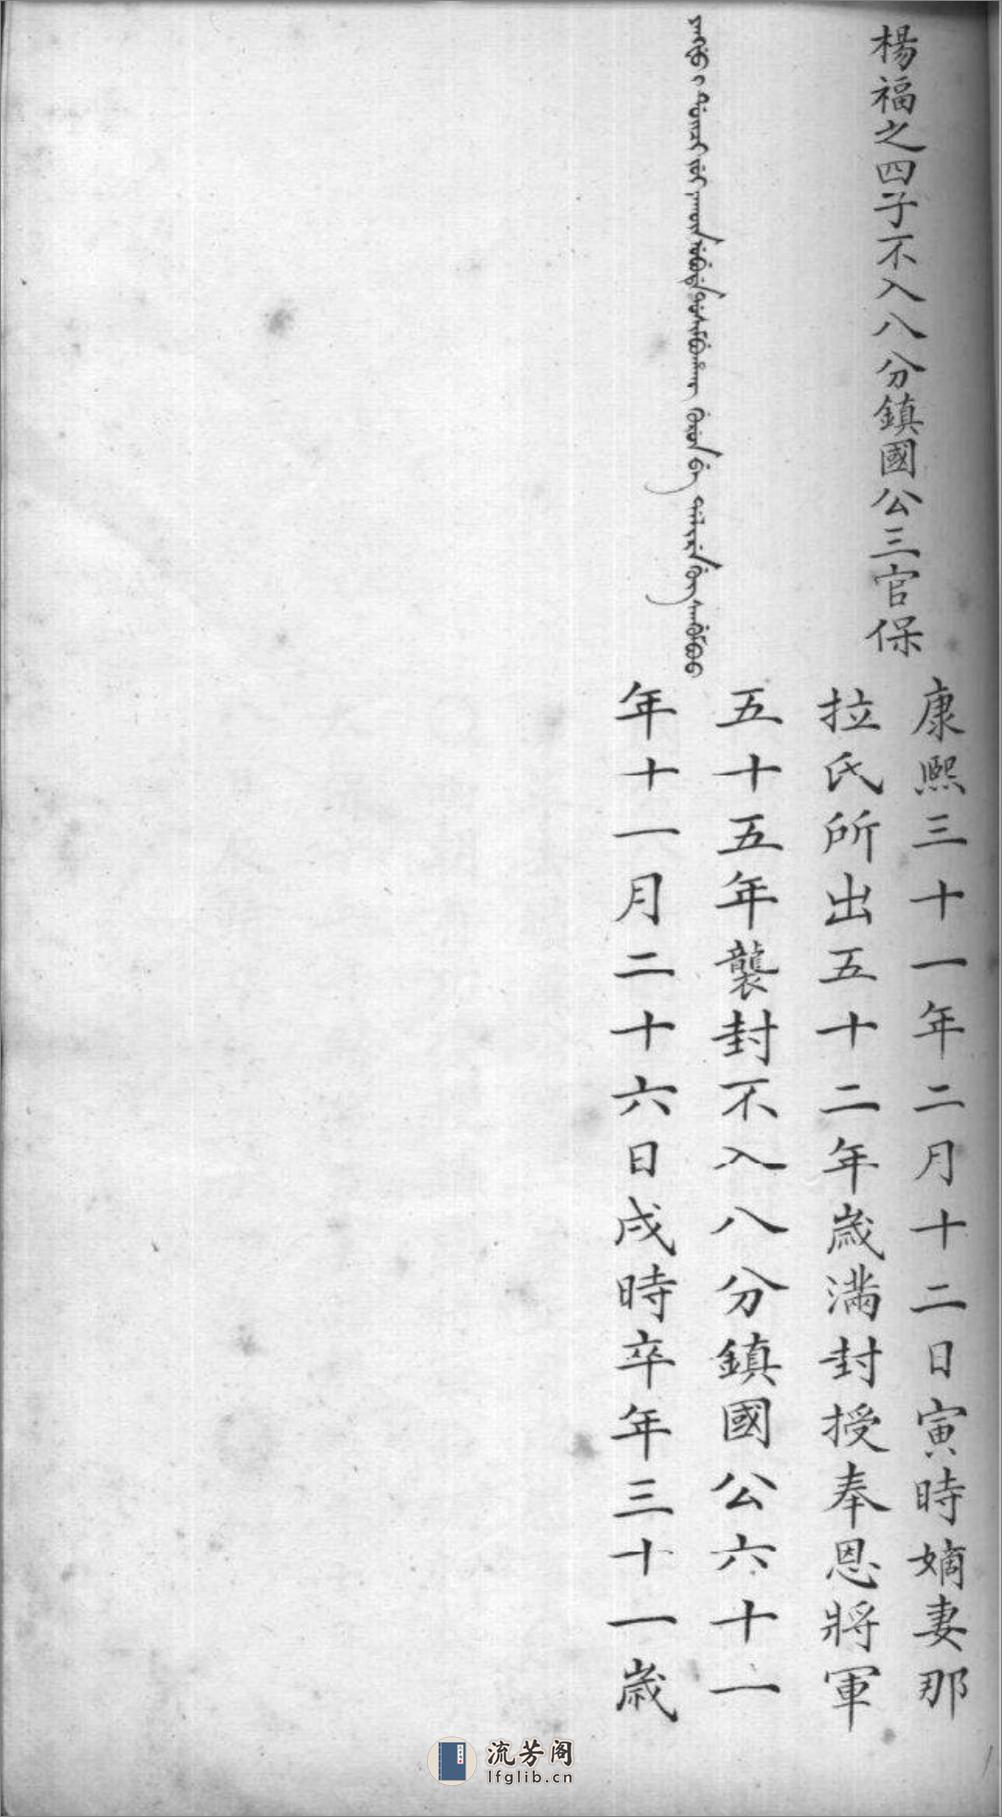 楊福之四子不入八分鎮國公三官保
康熙三十一年二月十二日寅時嫡妻那
拉氏所出五十二年歲滿封授奉恩將軍
五十五年襲封不入八分鎮國公六十一
年十一月二十六日戌時卒年三十一歲
流芳阁
lfglib.cn